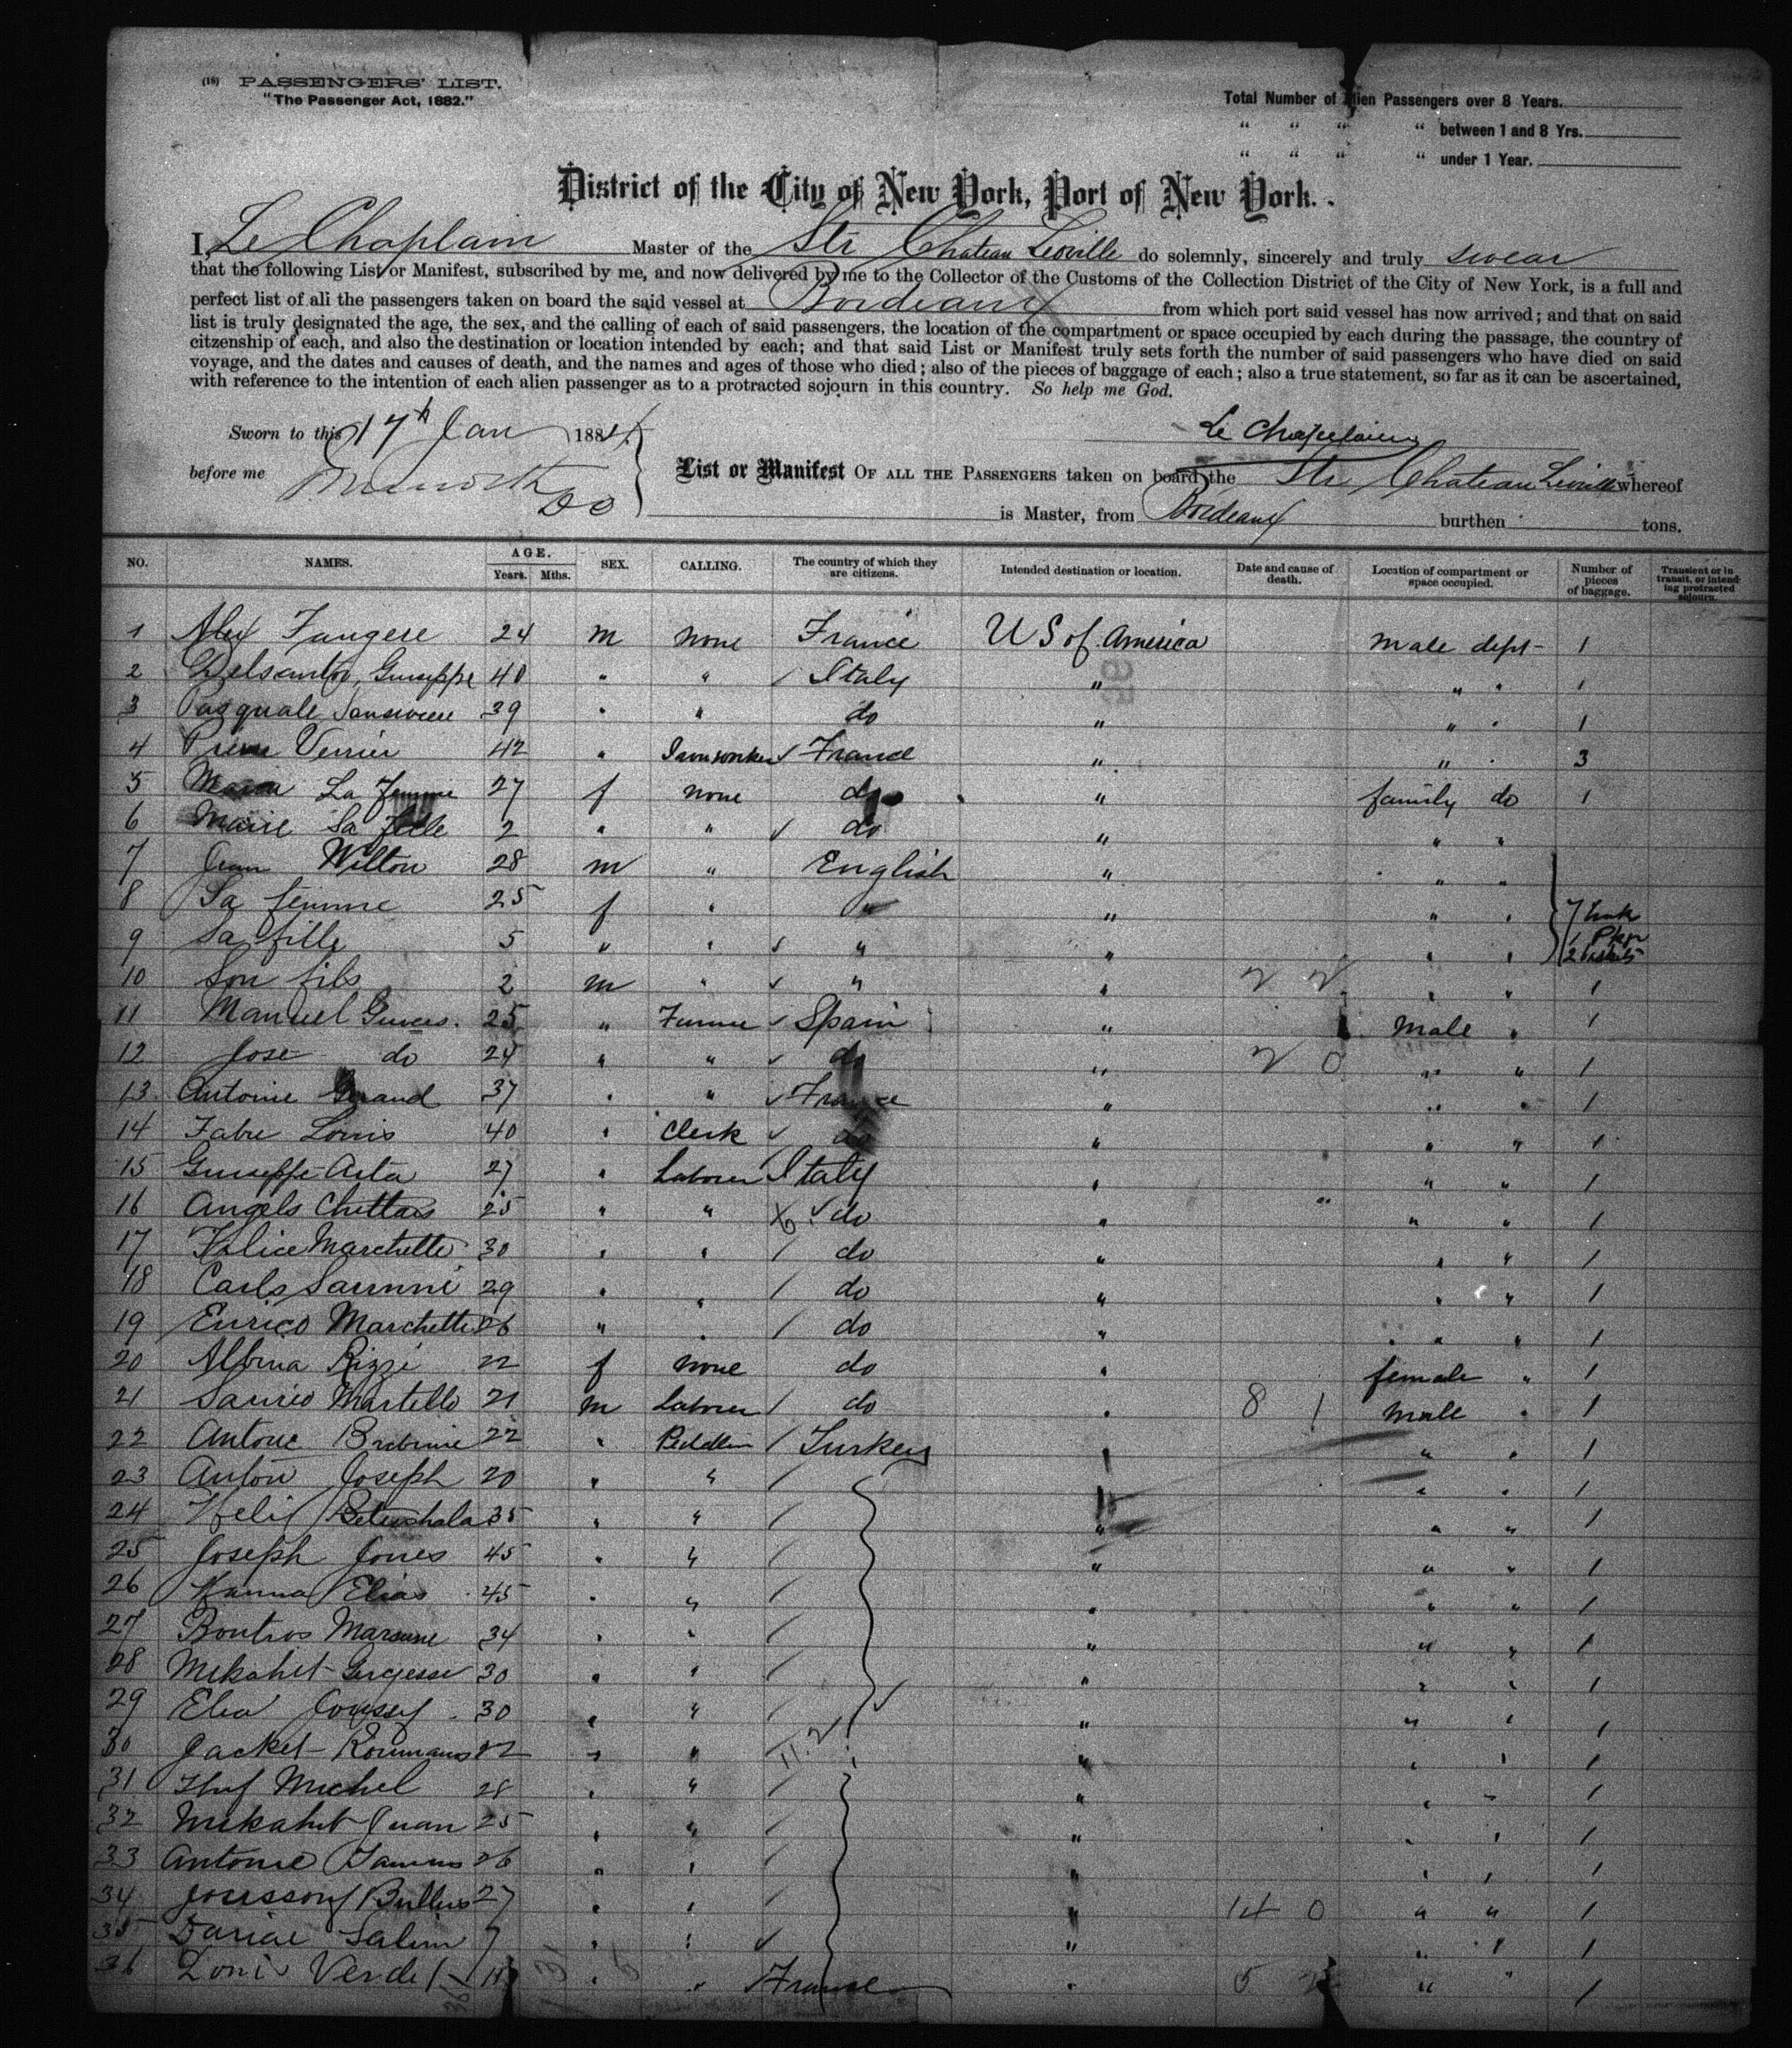 (18) PASSENGERS' LIST.
"The Passenger Act, 1882."
Total Number of Alien Passengers over 8 Years.
" " " " between 1 and 8 Yrs.
" " " " under 1 Year.
District of the City of New York, Port of New York.
I, Le Chaplain Master of the Str Chateau Leoville do solemnly, sincerely and truly swear
that the following List or Manifest, subscribed by me, and now delivered by me to the Collector of the Customs of the Collection District of the City of New York, is a full and
perfect list of all the passengers taken on board the said vessel at Bordeaux from which port said vessel has now arrived; and that on said
list is truly designated the age, the sex, and the calling of each of said passengers, the location of the compartment or space occupied by each during the passage, the country of
citzenship of each, and also the destination or location intended by each; and that said List or Manifest truly sets forth the number of said passengers who have died on said
voyage, and the dates and causes of death, and the names and ages of those who died; also of the pieces of baggage of each; also a true statement, so far as it can be ascertained,
with reference to the intention of each alien passenger as to a protracted sojourn in this country. So help me God.
Sworn to this 17th Jan 1884
Le Chapelain
before me
DC
List or Manifest OF ALL THE PASSENGERS taken on board the Str Chateau Leoville whereof
is Master, from Bordeaux burthen tons.
NO. NAMES. AGE. Years. Mths. SEX. CALLING. The country of which they are citizens. Intended destination or location. Date and cause of death. Location of compartment or space occupied. Number of pieces of baggage. Transient or in transit, or intending protracted sojourn.
1 Alex Faugere 24 m none France U S of America male dept 1
2 Delsanto, Guiseppe 40 " " Italy " " " 1
3 Pasquale 39 " " do " " " 1
4 Verrier 42 " Ironworker France " " " 3
5 La femme 27 f none do " family do 1
6 Marie Sa fille 2 " " do " " "
7 Jean Wilton 28 m " English " " "
8 Sa femme 25 f " " " " " 7 trunk
9 Sa fille 5 " " " " " " 1 Pkge
2 baskets
10 Son fils 2 m " " " 2 2 " " 1
11 Manuel 25 " Spain " male " 1
12 Jose do 24 " " do " 2 0 " " 1
13 Antoine Girand 37 " " France " " " 1
14 Fabre Louis 40 " Clerk do " " " 1
15 Guiseppe Arta 27 " Laborer Italy " " " 1
16 Angelo 25 " " do " " " 1
17 Felice Marchette 30 " " do " " " 1
18 Carlo 29 " " do " " " 1
19 Enrico Marchette 26 " " do " " " 1
20 Albina Rizzi 22 f none do " female " 1
21 Martello 21 m Laborer do " 8 1 male " 1
22 Antone 22 " Peddler Turkey " " " 1
23 Anton Joseph 20 " " " " " 1
24 35 " " " " " 1
25 Joseph Jones 45 " " " " " 1
26 Hanna Elias 45 " " " " " 1
27 Boutros 34 " " " " " 1
28 Mikahil 30 " " " " " 1
29 Elia Joussef 30 " " " " " 1
30 Roumanos 22 " " 11.2 " " " 1
31 Michel 28 " " " " " 1
32 Mikahil Juan 25 " " " " " 1
33 Antonie 26 " " " " " 1
34 Joussouf 27 " " " 14 0 " " 1
35 Salim 7 " " " " " 1
36 Louis Verdet " " France " 5 " " 1